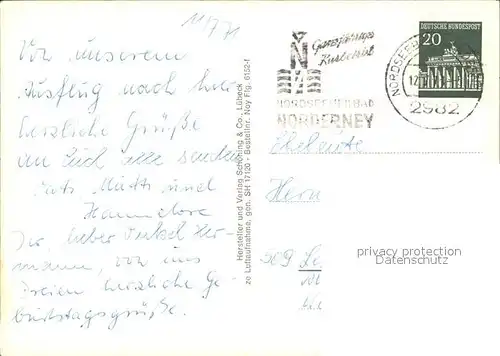 11/7 71
Von unserem
Ausflug nach hier
herzliche Grüße
an Euch alle senden
Mutti und
Hannelore
Dir, lieber Her-
mann, von uns
Dreien herzliche Ge-
burtstagsgrüße.
Hersteller und Verlag Schöning & Co., Lübeck
ze Luftaufnahme, gen. SH 17120 · Bestellnr. Ney Flg. 6152-f
Ganzjähriger
Kurbetrieb
N
NORDSEEHEILBAD
NORDERNEY
DEUTSCHE BUNDESPOST
20
NORDSEE
2982
Eheleute
Herrn
309
privacy protection
Datenschutz